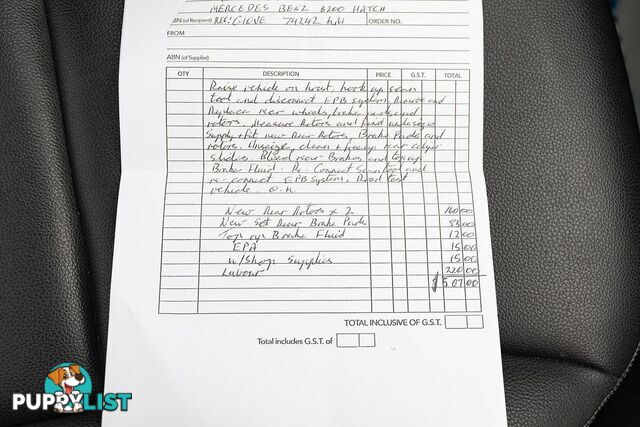 MERCEDES BENZ B200 HATCH
ABN (of Recipient) REG: 74242 KM ORDER NO.
FROM
ABN (of Supplier)
QTY DESCRIPTION PRICE G.S.T. TOTAL
Raise vehicle on hoist, hook up scan
tool and disconnect EPB system, Remove and
Replace rear wheels, brake pads and
rotors. Measure Rotors and find undersize
Supply + fit new Rear Rotors, Brake Pads and
rotors. Unseize, clean + free up rear caliper
slides. Bleed rear Brakes, and top up
Brake Fluid. Re-Connect Scan tool and
re-connect EPB System. Road test
vehicle. O.K
New Rear Rotors x 2 160 00
New Set Rear Brake Pads 00
Top up Brake Fluid 12 00
EPA 15 00
W/Shop Supplies 15 00
Labour 220 00
$507 00
TOTAL INCLUSIVE OF G.S.T.
Total includes G.S.T. of
PUPPYLIST